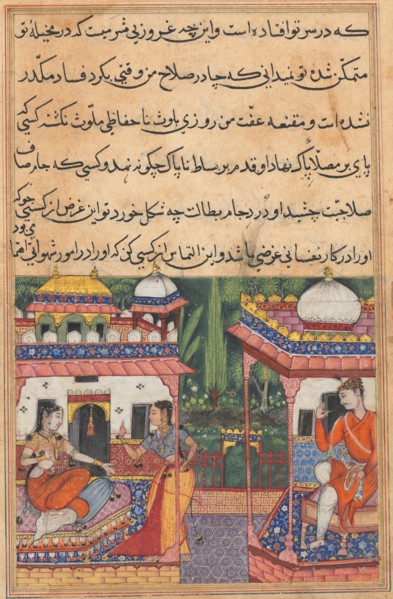 که در سر تو افتاده است و این چه غرور بی شرمیست که در مخیلهٔ تو
متمکن شده تو نمیدانی که چادر صلاح من وقتی بگرد فساد مکدر
نشده است و مقنعه عفت من روزی بلوث ناحفاظی ملوث نکشته کسی که
پای بر مصلا پاک نهاد او قدم بر بساط ناپاک چکونه نهد و کسی که جام صاف
صلاحیت چشید او درد جام بطالت چه شکل خورد تو این غرض از کسی جو که
وی بود
او را در کار نفسانی غرضی باشد و این التماس از کسی کن که او را در امور شهوانی